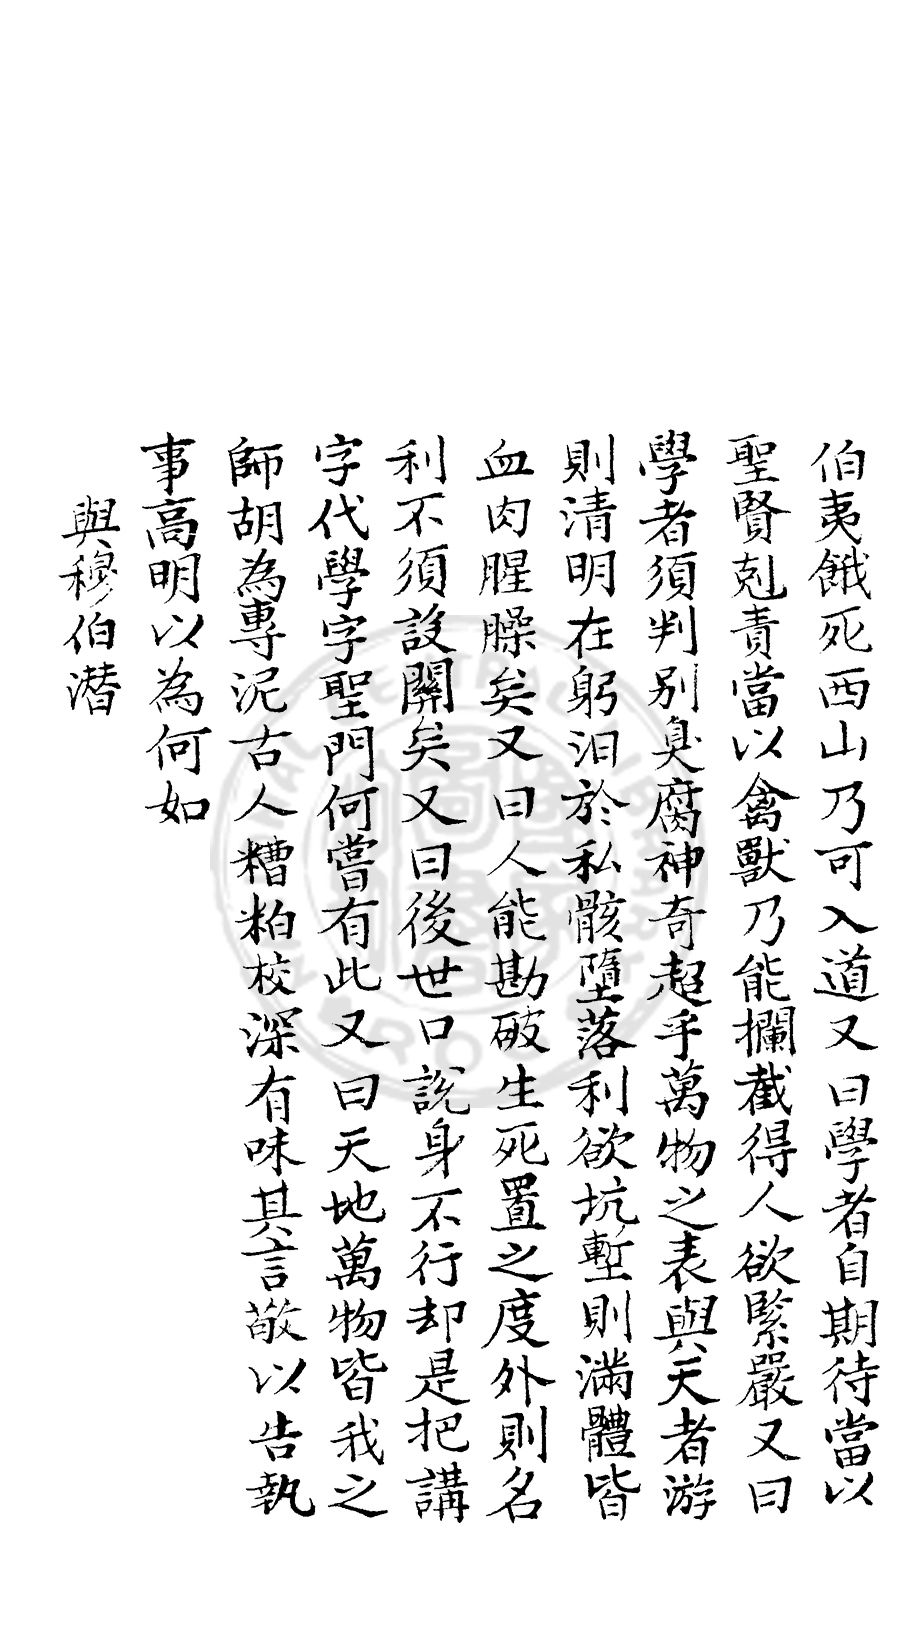 伯夷餓死西山乃可入道又曰學者自期待當以
聖賢剋責當以禽獸乃能攔截得人欲緊嚴又曰
學者須判別臭腐神奇超乎萬物之表與天者游
則清明在躬汨於私骸墮落利欲坑塹則滿體皆
血肉腥臊矣又曰人能勘破生死置之度外則名
利不須設關矣又曰後世口說身不行却是把講
字代學字聖門何嘗有此又曰天地萬物皆我之
師胡為專泥古人糟粕校深有味其言敬以告執
事高明以為何如
與穆伯潛